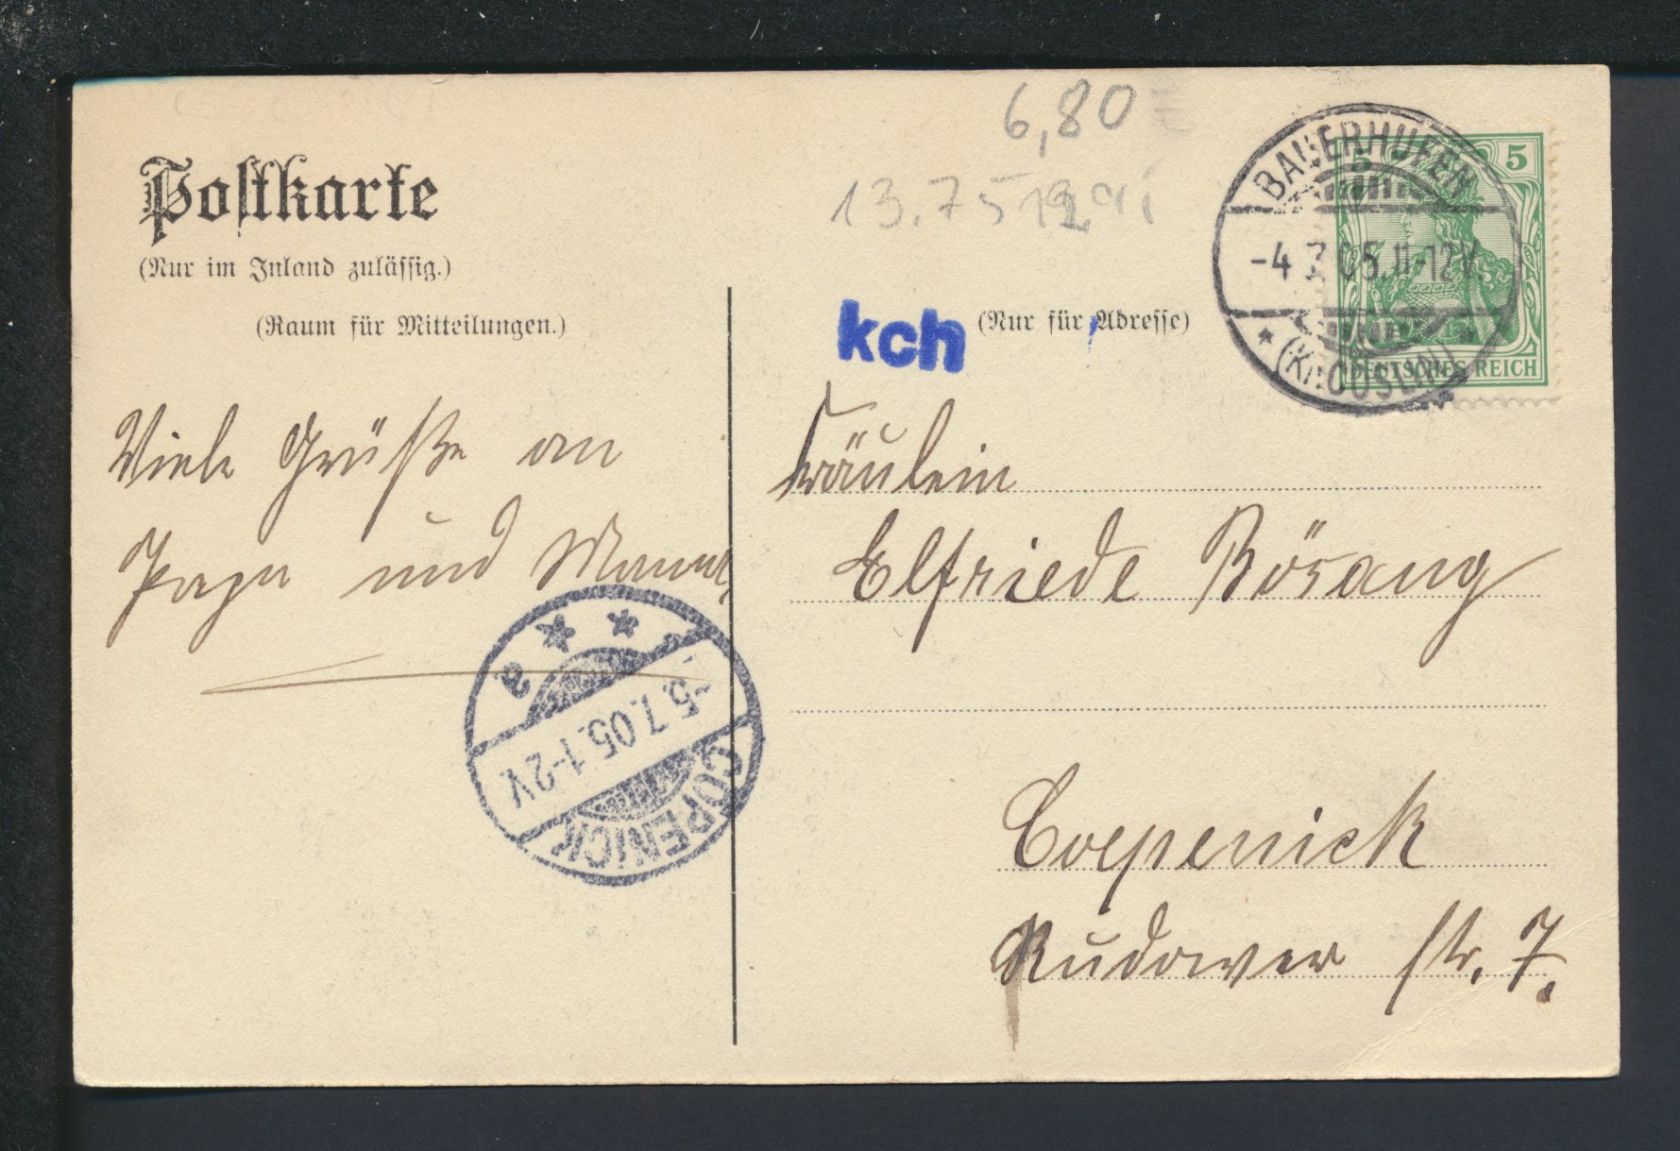 Postkarte
(Nur im Inland zulässig.)
(Raum für Mitteilungen.)
(Nur für Adresse)
kch
6,80
13.75
BAUERHUFEN
-4 7 05.11-12V.
(Kr. CÖSLIN)
5 5
DEUTSCHES REICH
Viele Grüße an
Papa und Mama
Fräulein
Elfriede Bösang
Coepenick
Rudower Str. 7.
CÖPENICK
-5.7.05.1-2V.
a